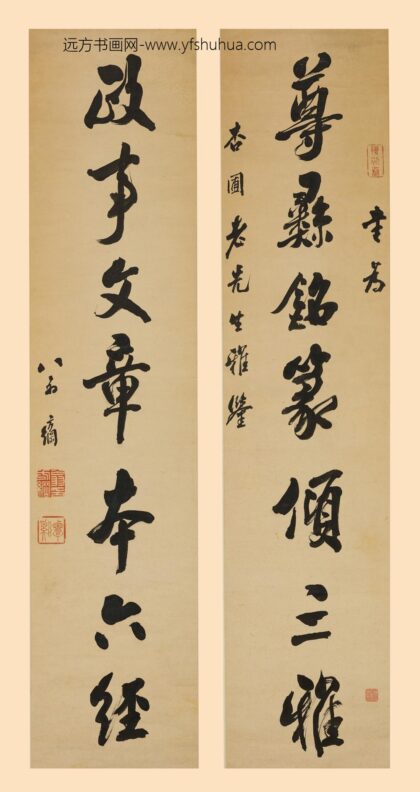 远方书画网-www.yfshuhua.com
書為
尊彝銘篆傾三雅
杏圃老先生雅鑒
政事文章本六經